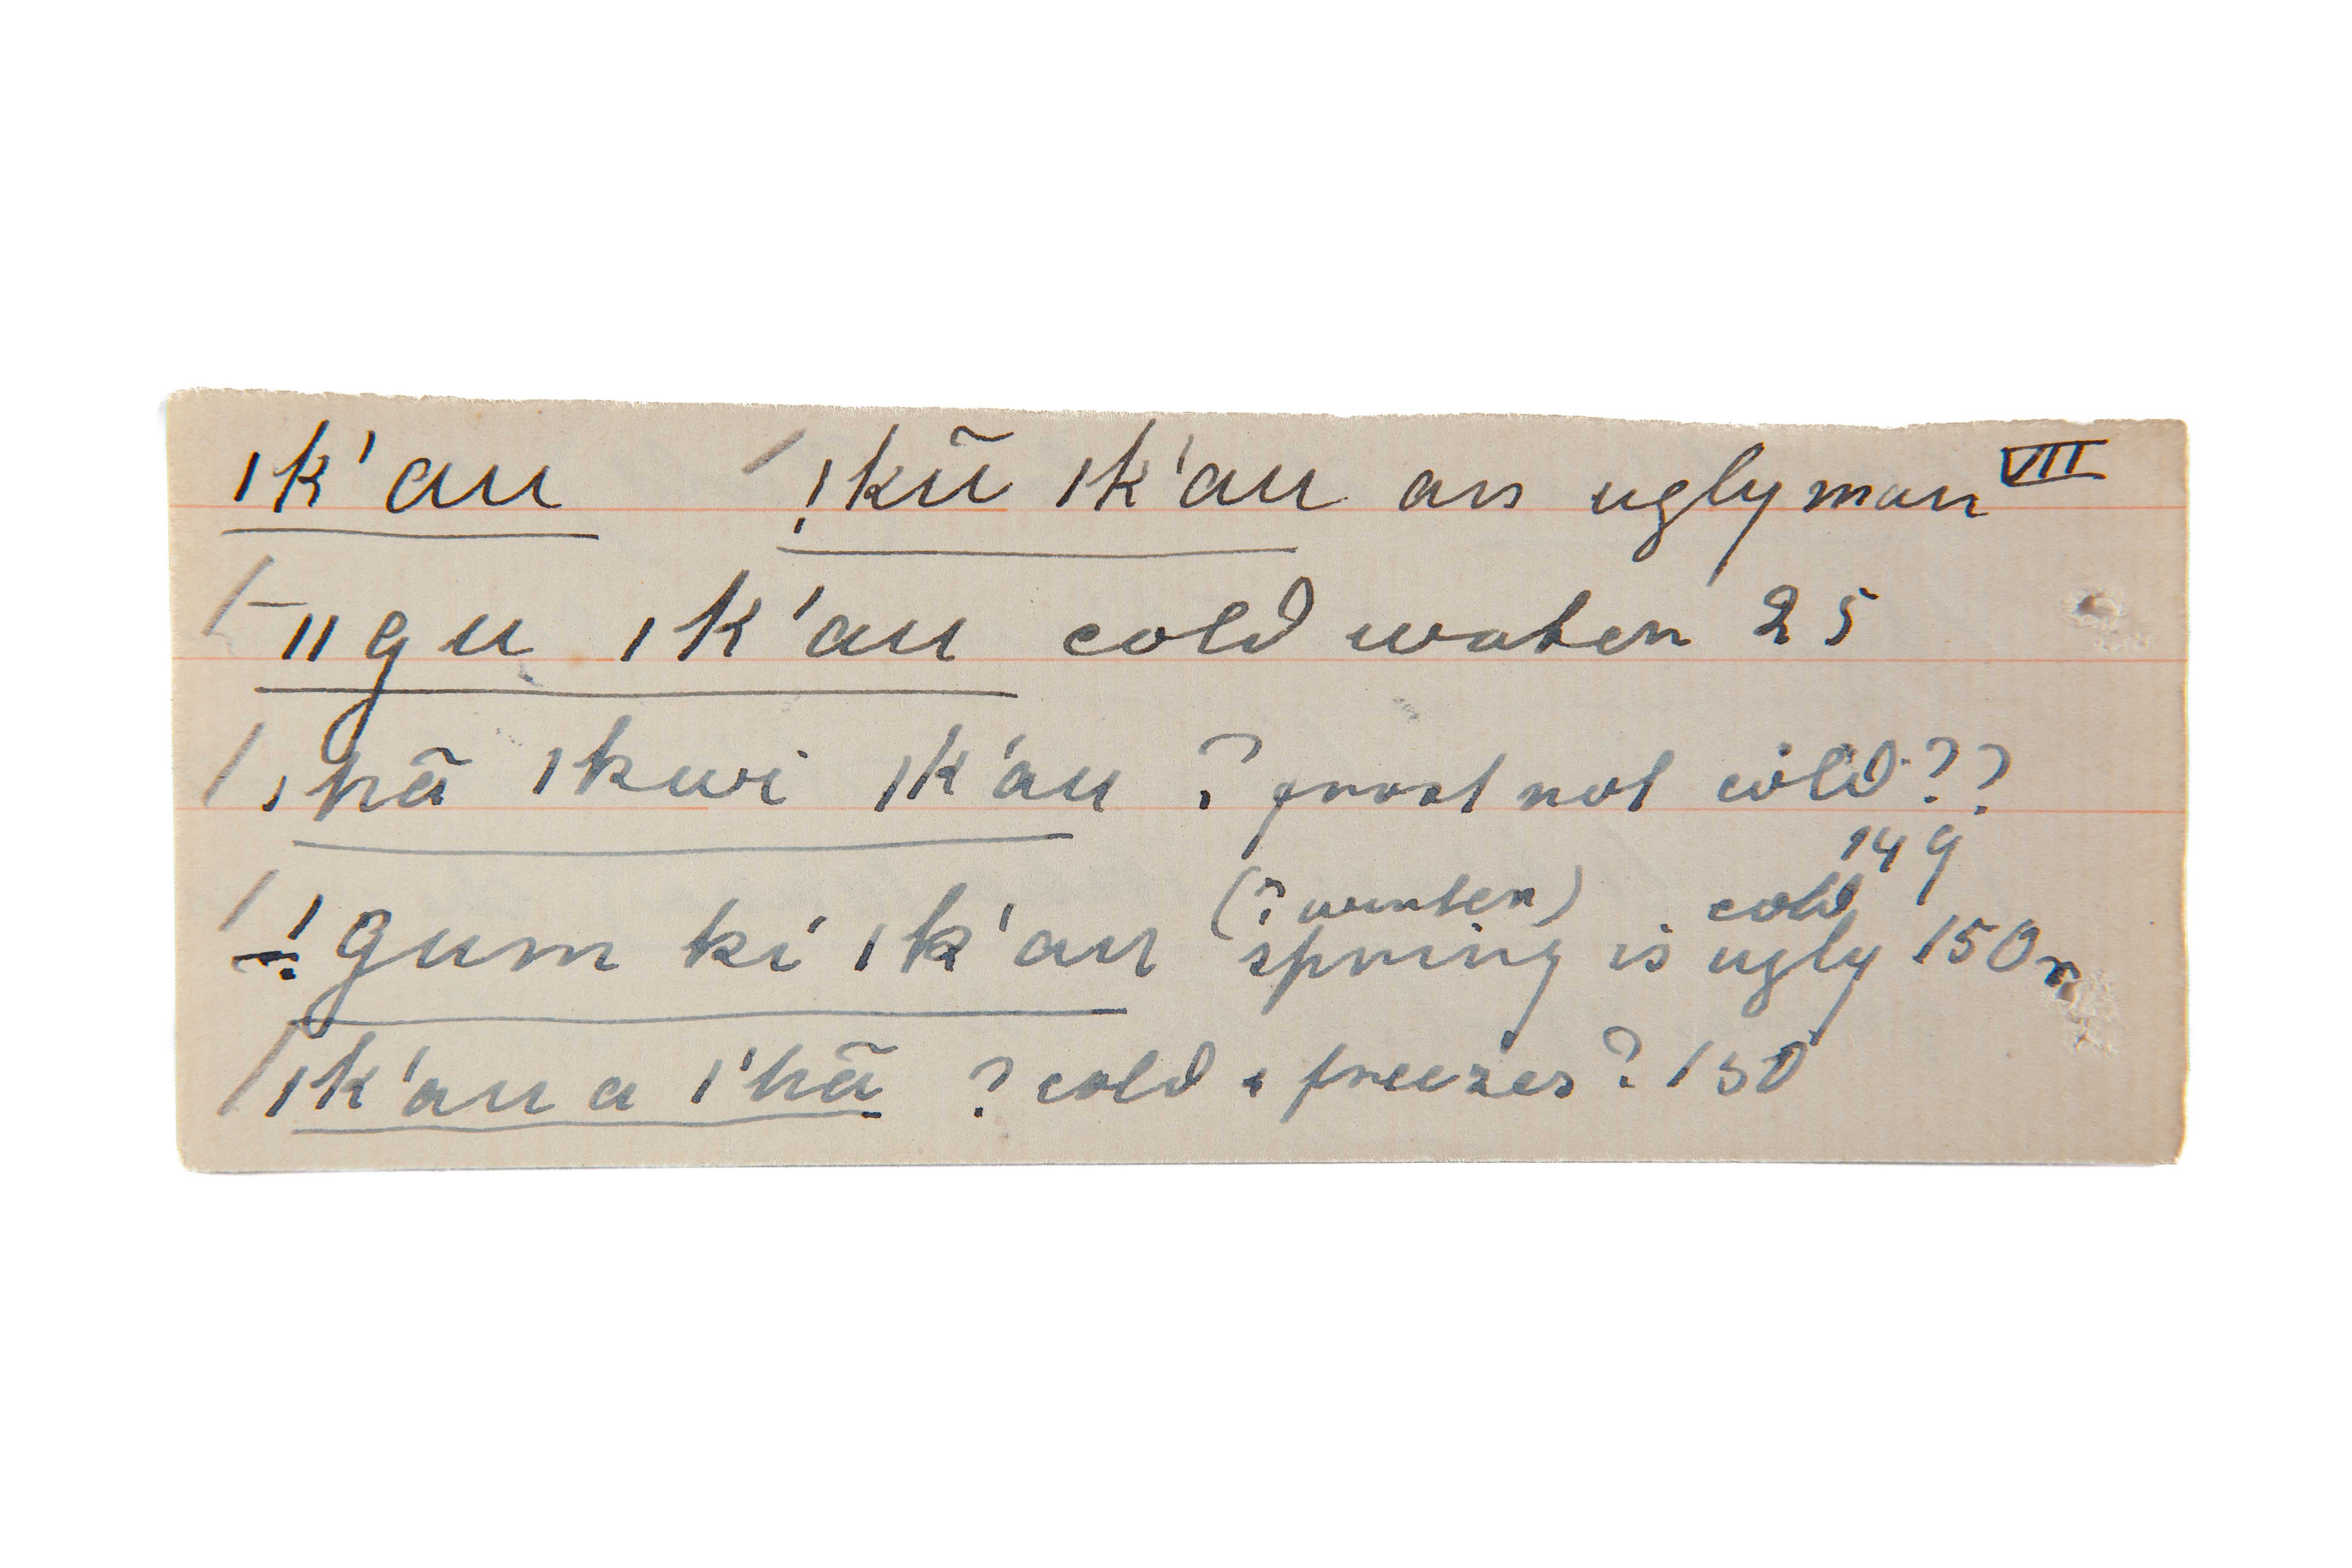 ǀk'au ǃkũ ǀk'au an ugly man VII
ǁgu ǀk'au cold water 25
ǀhã ǀkwi ǀk'au ? frost not cold ??
149
(? winter) cold
ǃgum ki ǀk'au spring is ugly 150r
ǀk'au a ǀ'hã ? cold & freezes ? 150